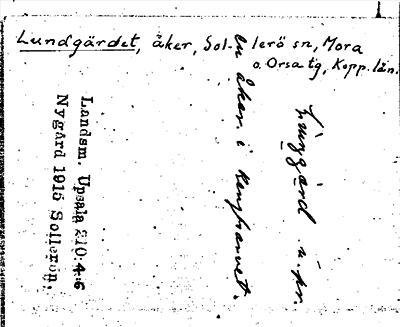 Lundgärdet, åker, Sollerö sn, Mora
o. Orsa tg, Kopp. län.
Lunggärd n. pr.
en åker i
Landsm. Upsala 210:4:6
Nygård 1915 Sollerön.